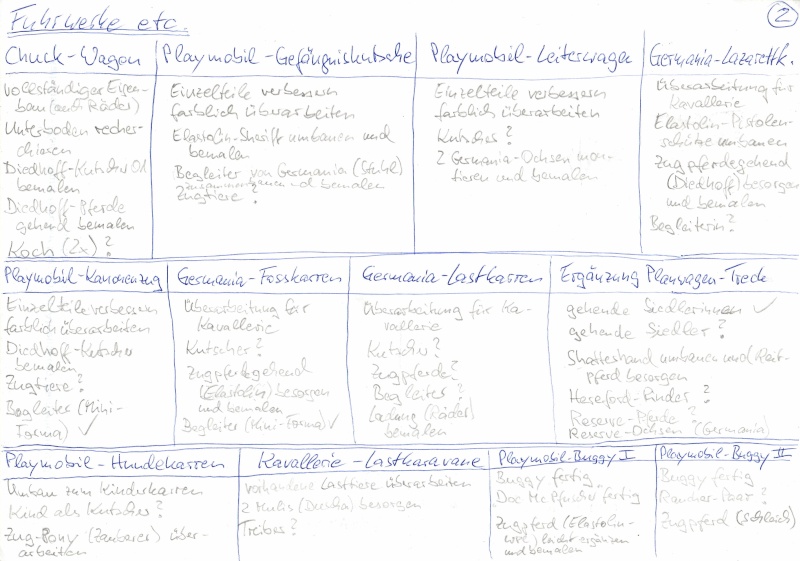 Fuhrwerke etc.
2
Chuck-Wagen
vollständiger Eigen-
bau (auch Räder)
Unterboden recher-
chieren
Diedhoff-Kutscher 01
bemalen
Diedhoff-Pferde
gehend bemalen
Koch (2x)?
Playmobil-Gefängniskutsche
Einzelteile verbessern
farblich überarbeiten
Elastolin-Sheriff umbauen und
bemalen
Begleiter von Germania (Stuhl)
zusammen und bemalen
Zugtiere?
Playmobil-Leiterwagen
Einzelteile verbessern
farblich überarbeiten
Kutscher?
2 Germania-Ochsen mon-
tieren und bemalen
Germania-Lazarettk.
Überarbeitung für
Kavallerie
Elastolin-Pistolen-
schütze umbauen
Zugpferde gehend
(Diedhoff) besorgen
und bemalen
Begleiterin?
Playmobil-Kanonenzug
Einzelteile verbessern
farblich überarbeiten
Diedhoff-Kutscher
bemalen
Zugtiere?
Begleiter (Mini-
Forma) ✓
Germania-Fasskarren
Überarbeitung für
Kavallerie
Kutscher?
Zugpferde gehend
(Elastolin) besorgen
und bemalen
Begleiter (Mini-Forma) ✓
Germania-Lastkarren
Überarbeitung für Ka-
vallerie
Kutscher?
Zugpferde?
Begleiter?
Ladung (Räder)
bemalen
Ergänzung Planwagen-Treck
gehende Siedlerinnen ✓
gehende Siedler?
Shatterhand umbauen und Reit-
pferd besorgen
Hereford-Rinder?
Reserve-Pferde?
Reserve-Ochsen (Germania)
Playmobil-Hundekarren
Umbau zum Kinderkarren
Kind als Kutscher?
Zug-Pony (Zauberer) über-
arbeiten
Kavallerie-Lastkarawane
vorhandene Lasttiere überarbeiten
2 Mulis (Duscha) besorgen
Treiber?
Playmobil-Buggy I
Buggy fertig
Doc McPfusch fertig
Zugpferd (Elastolin-
) leicht ergänzen
und bemalen
Playmobil-Buggy II
Buggy fertig
Rancher-Paar?
Zugpferd (Schleich)